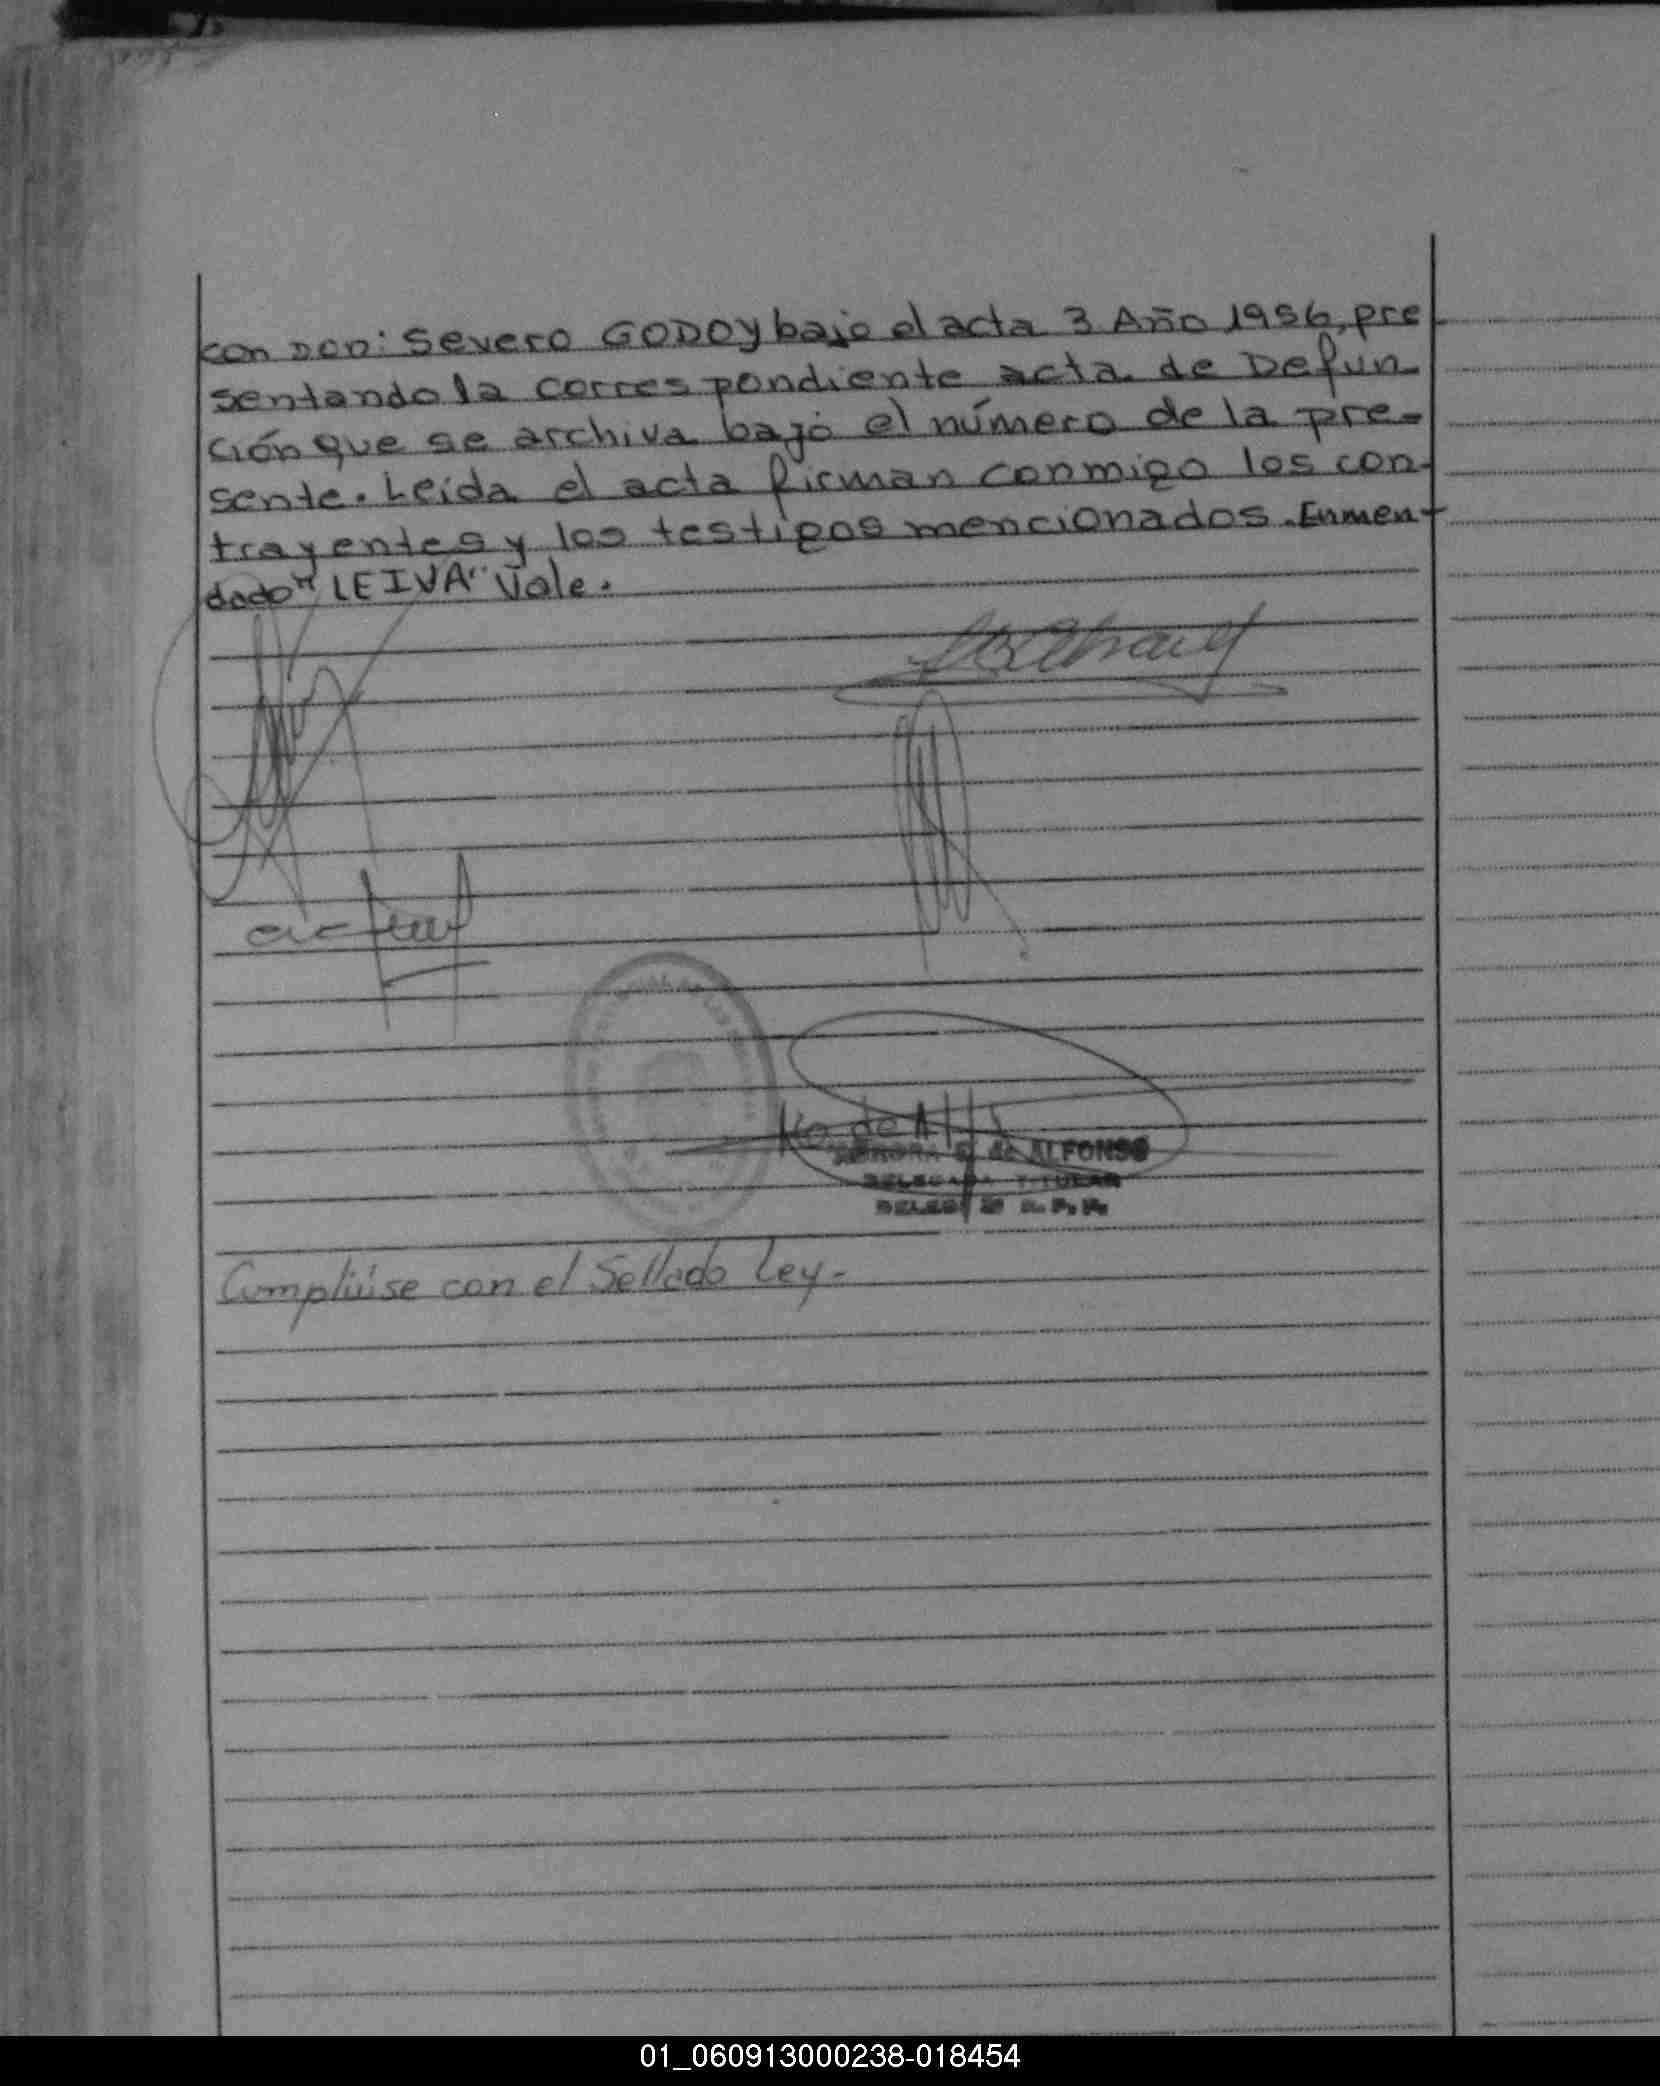 con Don: Severo GODOY bajo el acta 3 Año 1956, pre
sentando la correspondiente acta de Defun
ción que se archiva bajo el número de la pre-
sente. Leída el acta firman conmigo los con-
trayentes y los testigos mencionados. Enmen-
dado "LEIVA" Vale.
de ALFONSO
DELEGADA TITULAR
Cumplióse con el Sellado Ley-
01_060913000238-018454